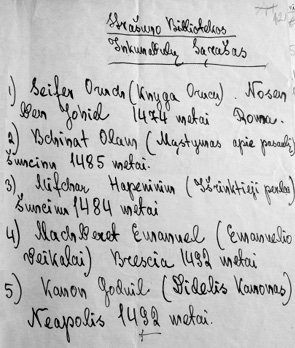 Strašuno Bibliotekos
Inkunabulų Sąrašas
1) Seifer Oruch (Knyga Oruch). Nosen
Ben Jehiel 1474 metai Roma.
2) Bchinat Olam (Mąstymas apie pasaulį)
Suncinu 1485 metai.
3) Mifchar Hapeninim (Išrinktieji perlai)
Suncinu 1484 metai
4) Machberet Emanuel (Emanuelio
Veikalai) Brescia 1492 metai
5) Kanon Godoil (Didelis Kanonas)
Neapolis 1492 metai.